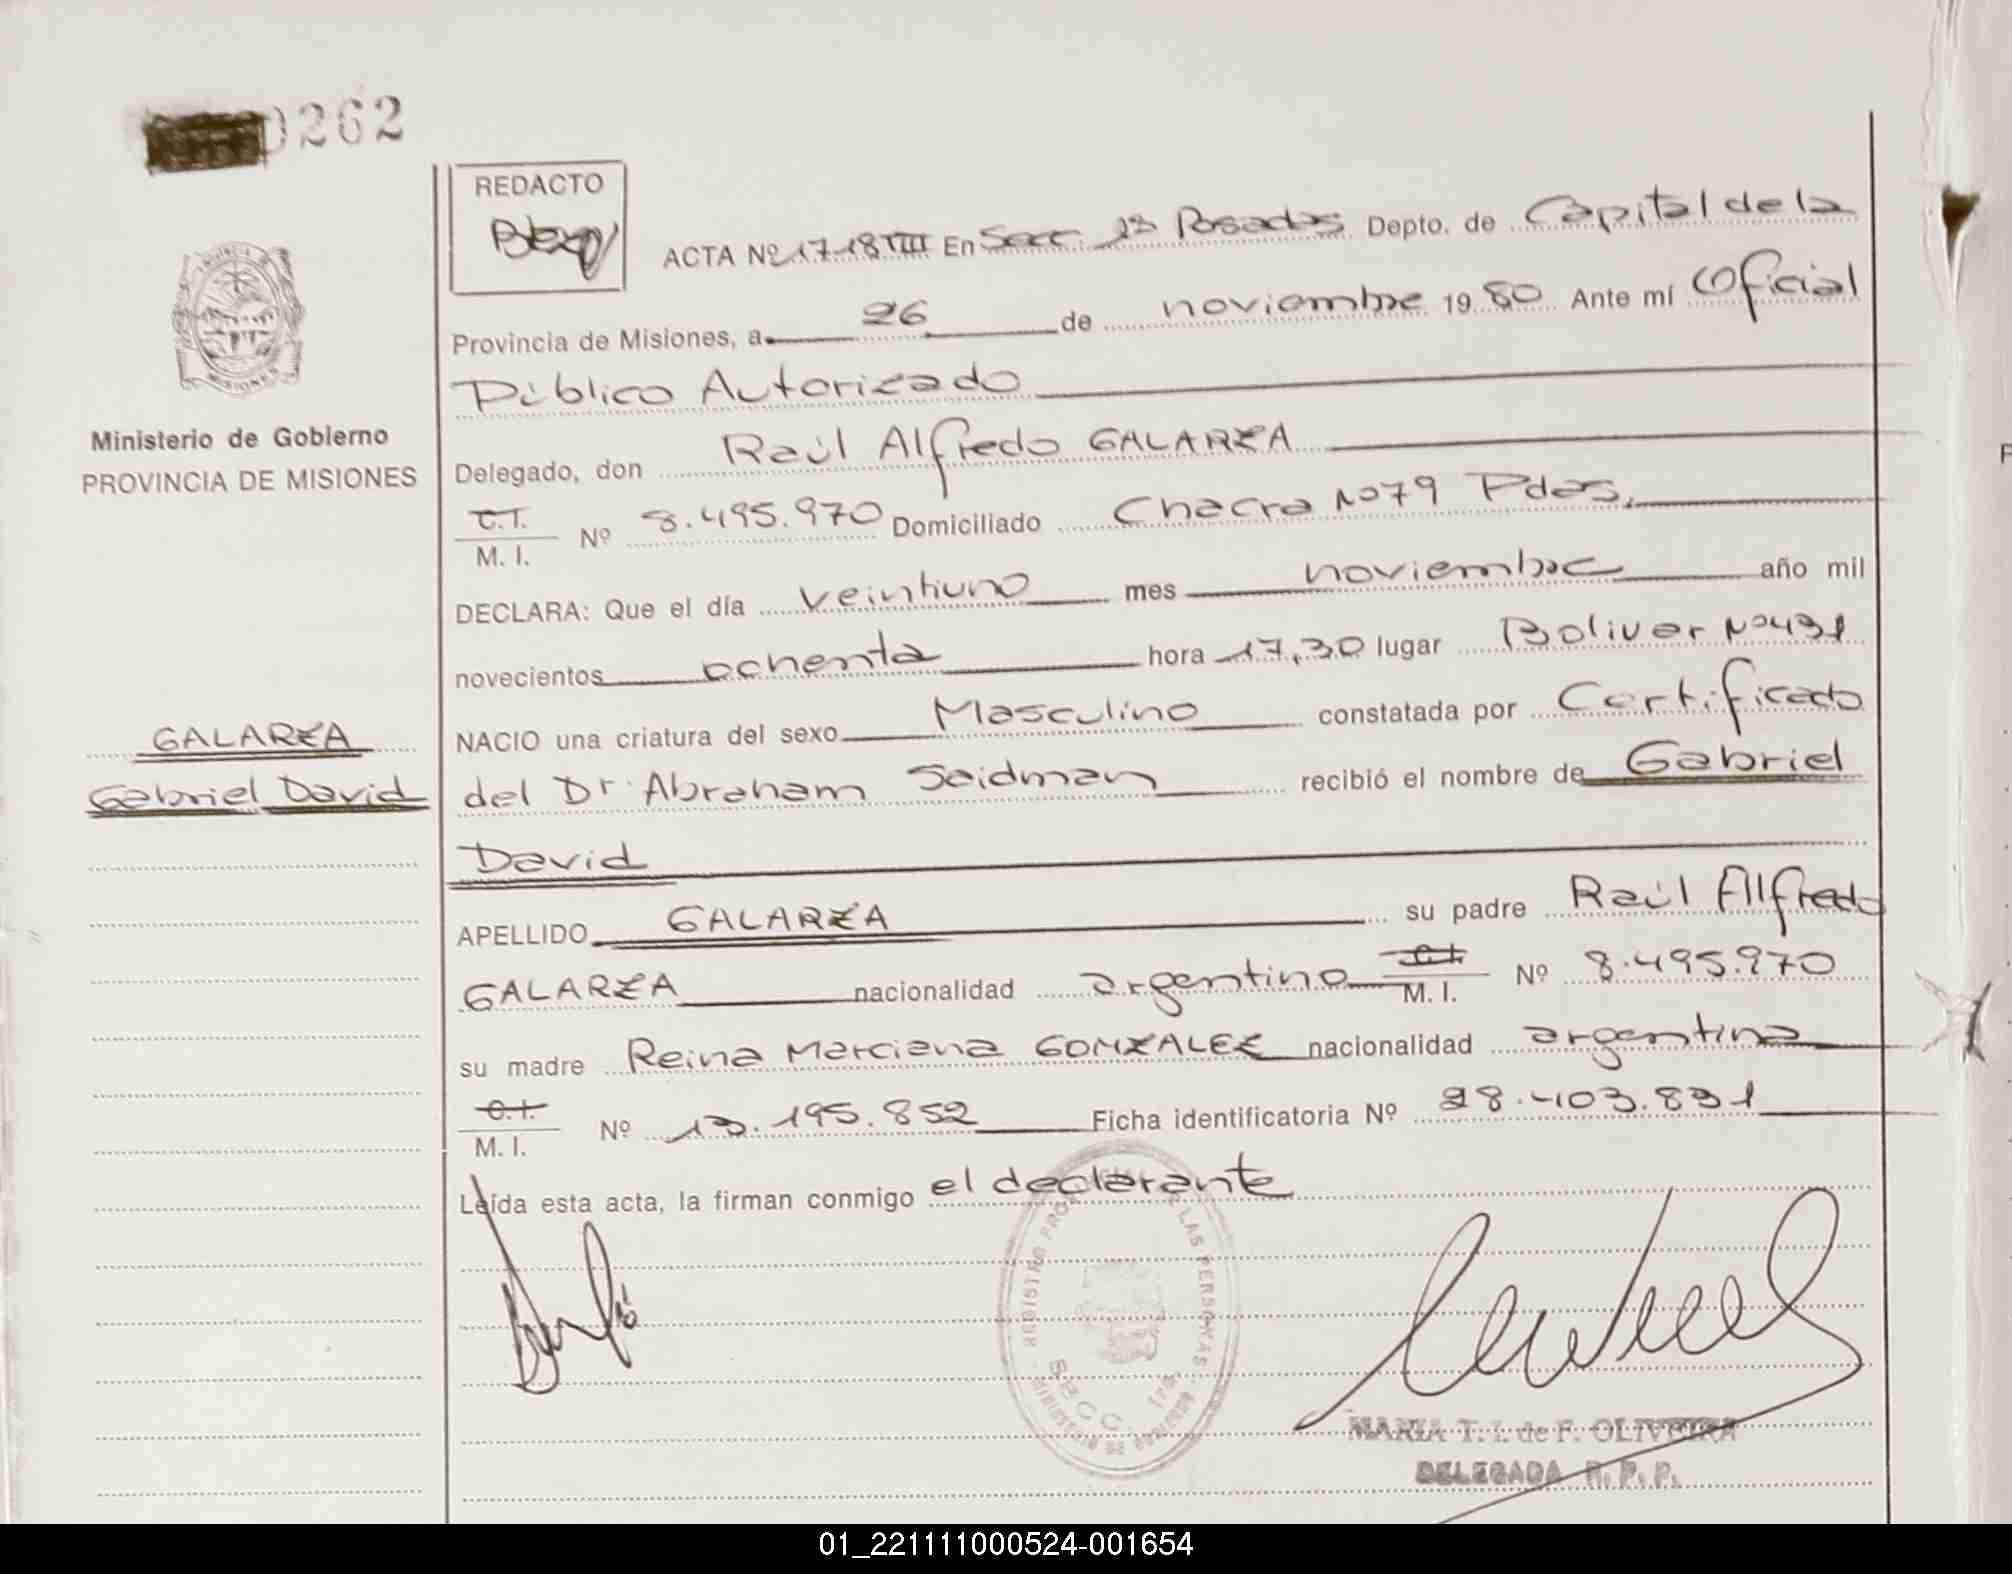 0262
REDACTO
ACTA Nº 1718 VIII En Secc. 1ª Posadas Depto. de Capital de la
Provincia de Misiones, a 26 de noviembre 1980 Ante mí Oficial
Público Autorizado
MISIONES
Ministerio de Gobierno
PROVINCIA DE MISIONES
Delegado, don Raúl Alfredo GALARZA
C.I.
M. I. Nº 8.495.970 Domiciliado Chacra Nº 79 Pdas.
DECLARA: Que el día veintiuno mes noviembre año mil
novecientos ochenta hora 17,30 lugar Bolivar Nº 431
GALARZA
Gabriel David
NACIO una criatura del sexo Masculino constatada por Certificado
del Dr. Abraham Seidman recibió el nombre de Gabriel
David
APELLIDO GALARZA su padre Raúl Alfredo
GALARZA nacionalidad argentino C.I. M. I. Nº 8.495.970
su madre Reina Marciana GONZALEZ nacionalidad argentina
C.I.
M. I. Nº 13.195.852 Ficha identificatoria Nº 28.403.831
Leída esta acta, la firman conmigo el declarante
REGISTRO PROVINCIAL DE LAS PERSONAS
SECC. 1ra.
MINISTERIO DE GOBIERNO
MARIA T. I. de F. OLIVEIRA
DELEGADA R. P. P.
01_221111000524-001654